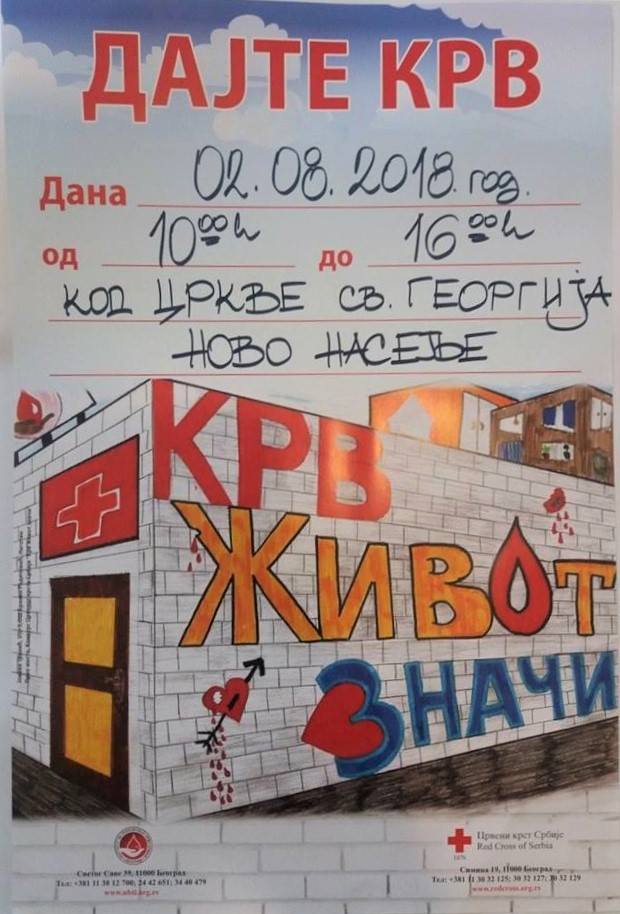 ДАЈТЕ КРВ
Дана 02.08.2018. год.
од 10⁰⁰h до 16⁰⁰h
КОД ЦРКВЕ СВ. ГЕОРГИЈА
НОВО НАСЕЉЕ
КРВ
ЖИВОТ
ЗНАЧИ
Светог Саве 39, 11000 Београд
Тел: +381 11 30 12 700; 24 42 651; 34 40 479
www.nbti.org.rs
Црвени крст Србије
Red Cross of Serbia
1876
Симина 19, 11000 Београд
Тел: +381 11 30 32 125; 30 32 127; 30 32 129
www.redcross.org.rs